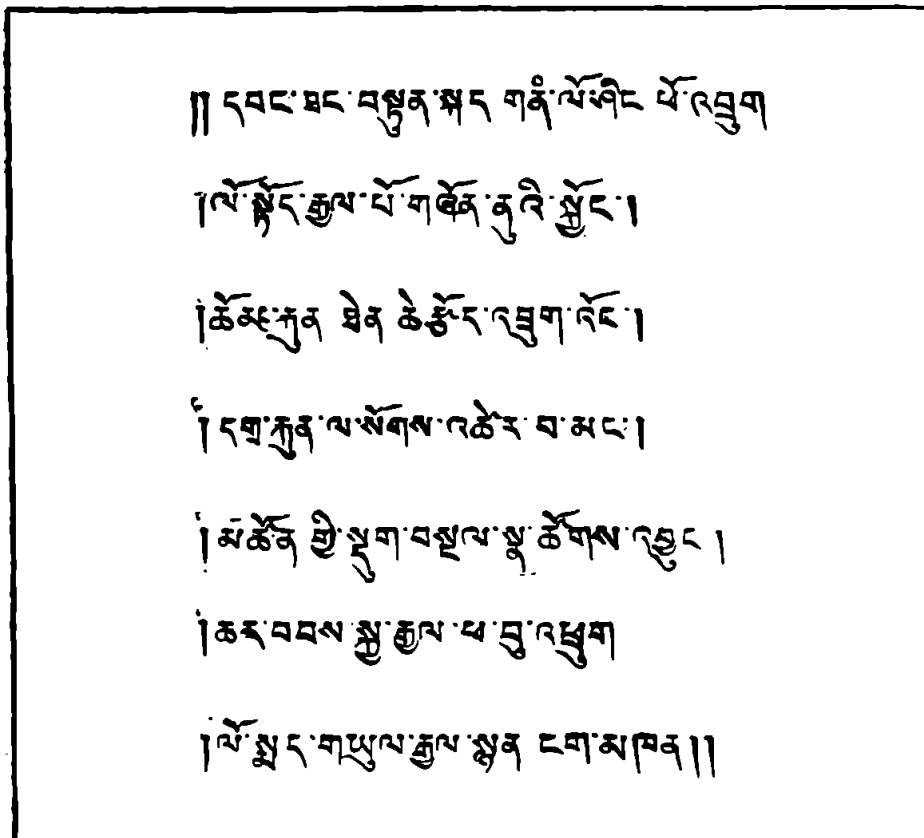 ༎ དབང་ཐང་བསྟུན་སྐད གནཾ་ལོ་ཤིང ཕོ་འབྲུག
།ལོ་སྟོད་རྒྱལ་པོ་གཞོན་ནུའི་སྐྱོང་།
།ཆོམ་རྐུན ཐེན ཆེ་རྩོད་འཁྲུག་འོང་།
།དགྲ་རྐུན་ལ་སོགས་འཚེར་བ་མང་།
།མཚོན གྱི་སྡུག་བསྔལ་སྣ་ཚོགས་འབྱུང །
།ཆར་བབས་སྐྱ་རྒྱལ་ཕ་བུ་འཕྲུག
།ལོ་སྨད་གཡུལ་རྒྱལ་སྙན ངག་མཁན།།